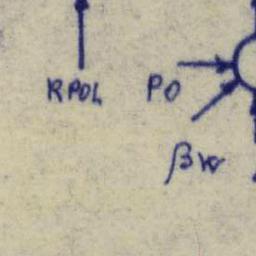 RPOL PO
βw